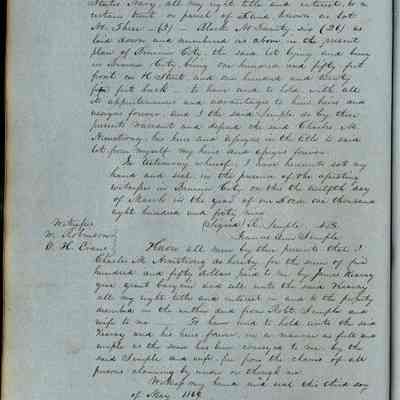 States Navy, all my right title and interest, to a
certain tract or parcel of Land known as lot
No. Three – (3) – Block No Twenty six (26) as
laid down and numbered as above in the present
plan of Benicia City, the said lot lying and being
in Benicia City, being one hundred and fifty feet
front on H Street and one hundred and twenty
five feet back – to have and to hold, with all
its appurtenances and advantages to him heirs and
assigns forever, and I the said Semple do by these
presents warrant and defend the said Charles M.
Armstrong, his heirs and assigns in the title to said
lot from myself my heirs and assigns forever.
In testimony whereof, I have hereunto set my
hand and seal in the presence of the attesting
witnesses in Benicia City on this the twelfth day
of March in the year of our Lord one thousand
eight hundred and forty nine
Witnesses Signed R. Semple
W. Robinson Semple
C. H. Crane Know all men by these presents that I
Charles M. Armstrong do hereby for the sum of five
hundred and fifty dollars paid to me by James
give grant bargain and sell unto the said
all my right title and interest in and to the property
described in the within deed from Robt. Semple and
wife to me – To have and to hold unto the said
and his heirs forever, in as manner as full and
ample as the same has been conveyed to me by the
said Semple and wife, free from the claims of all
persons claiming by under or through me
Witness my hand and seal this third day
of May 1849